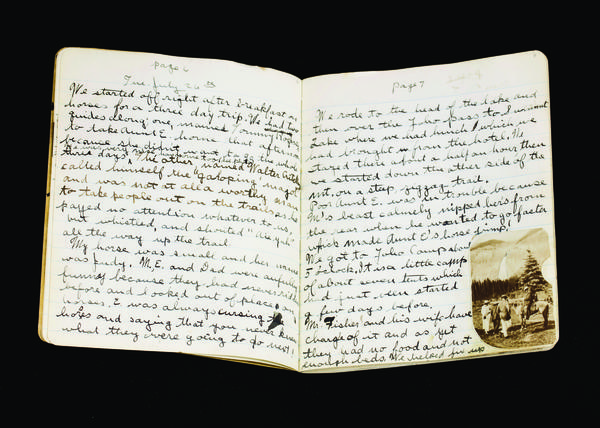 page 6
Tue. July 26th
We started off right after breakfast on
horses for a three day trip. We had two
guides along; one, named Tommy, going
to take Aunt E. home that after
because she didn't want to go the whole
three days. The other, named Walter
called himself the "galoping magot"
and was not at all a worthy man
to take people out on the trails as he
payed no attention whatever to us,
but whistled, and shouted
all the way up the trail.
My horse was small and her name
was Judy. M.E. and Dad were awfully
funny because they had never rode
before and looked out of place on
horses. E. was always cursing
and saying that you never knew
what they were going to do next!
page 7
We rode to the head of the lake and
then over the Yoho Pass to Summit
Lake where we had lunch which we
had brought from the hotel. We
stayed there about a half an hour then
we started down the other side of the
mt. on a steep zigzag trail.
Poor Aunt E. was in trouble because
M's beast calmely nipped hers from
the rear when he wanted to go faster
which made Aunt E's horse jump!
We got to Yoho Camp about
5 o'clock. It is a little camp
of about seven tents which
had just been started
a few days before.
Mr. Fisher and his wife have
charge of it and as yet
they had no food and not
enough beds. We helped fix up